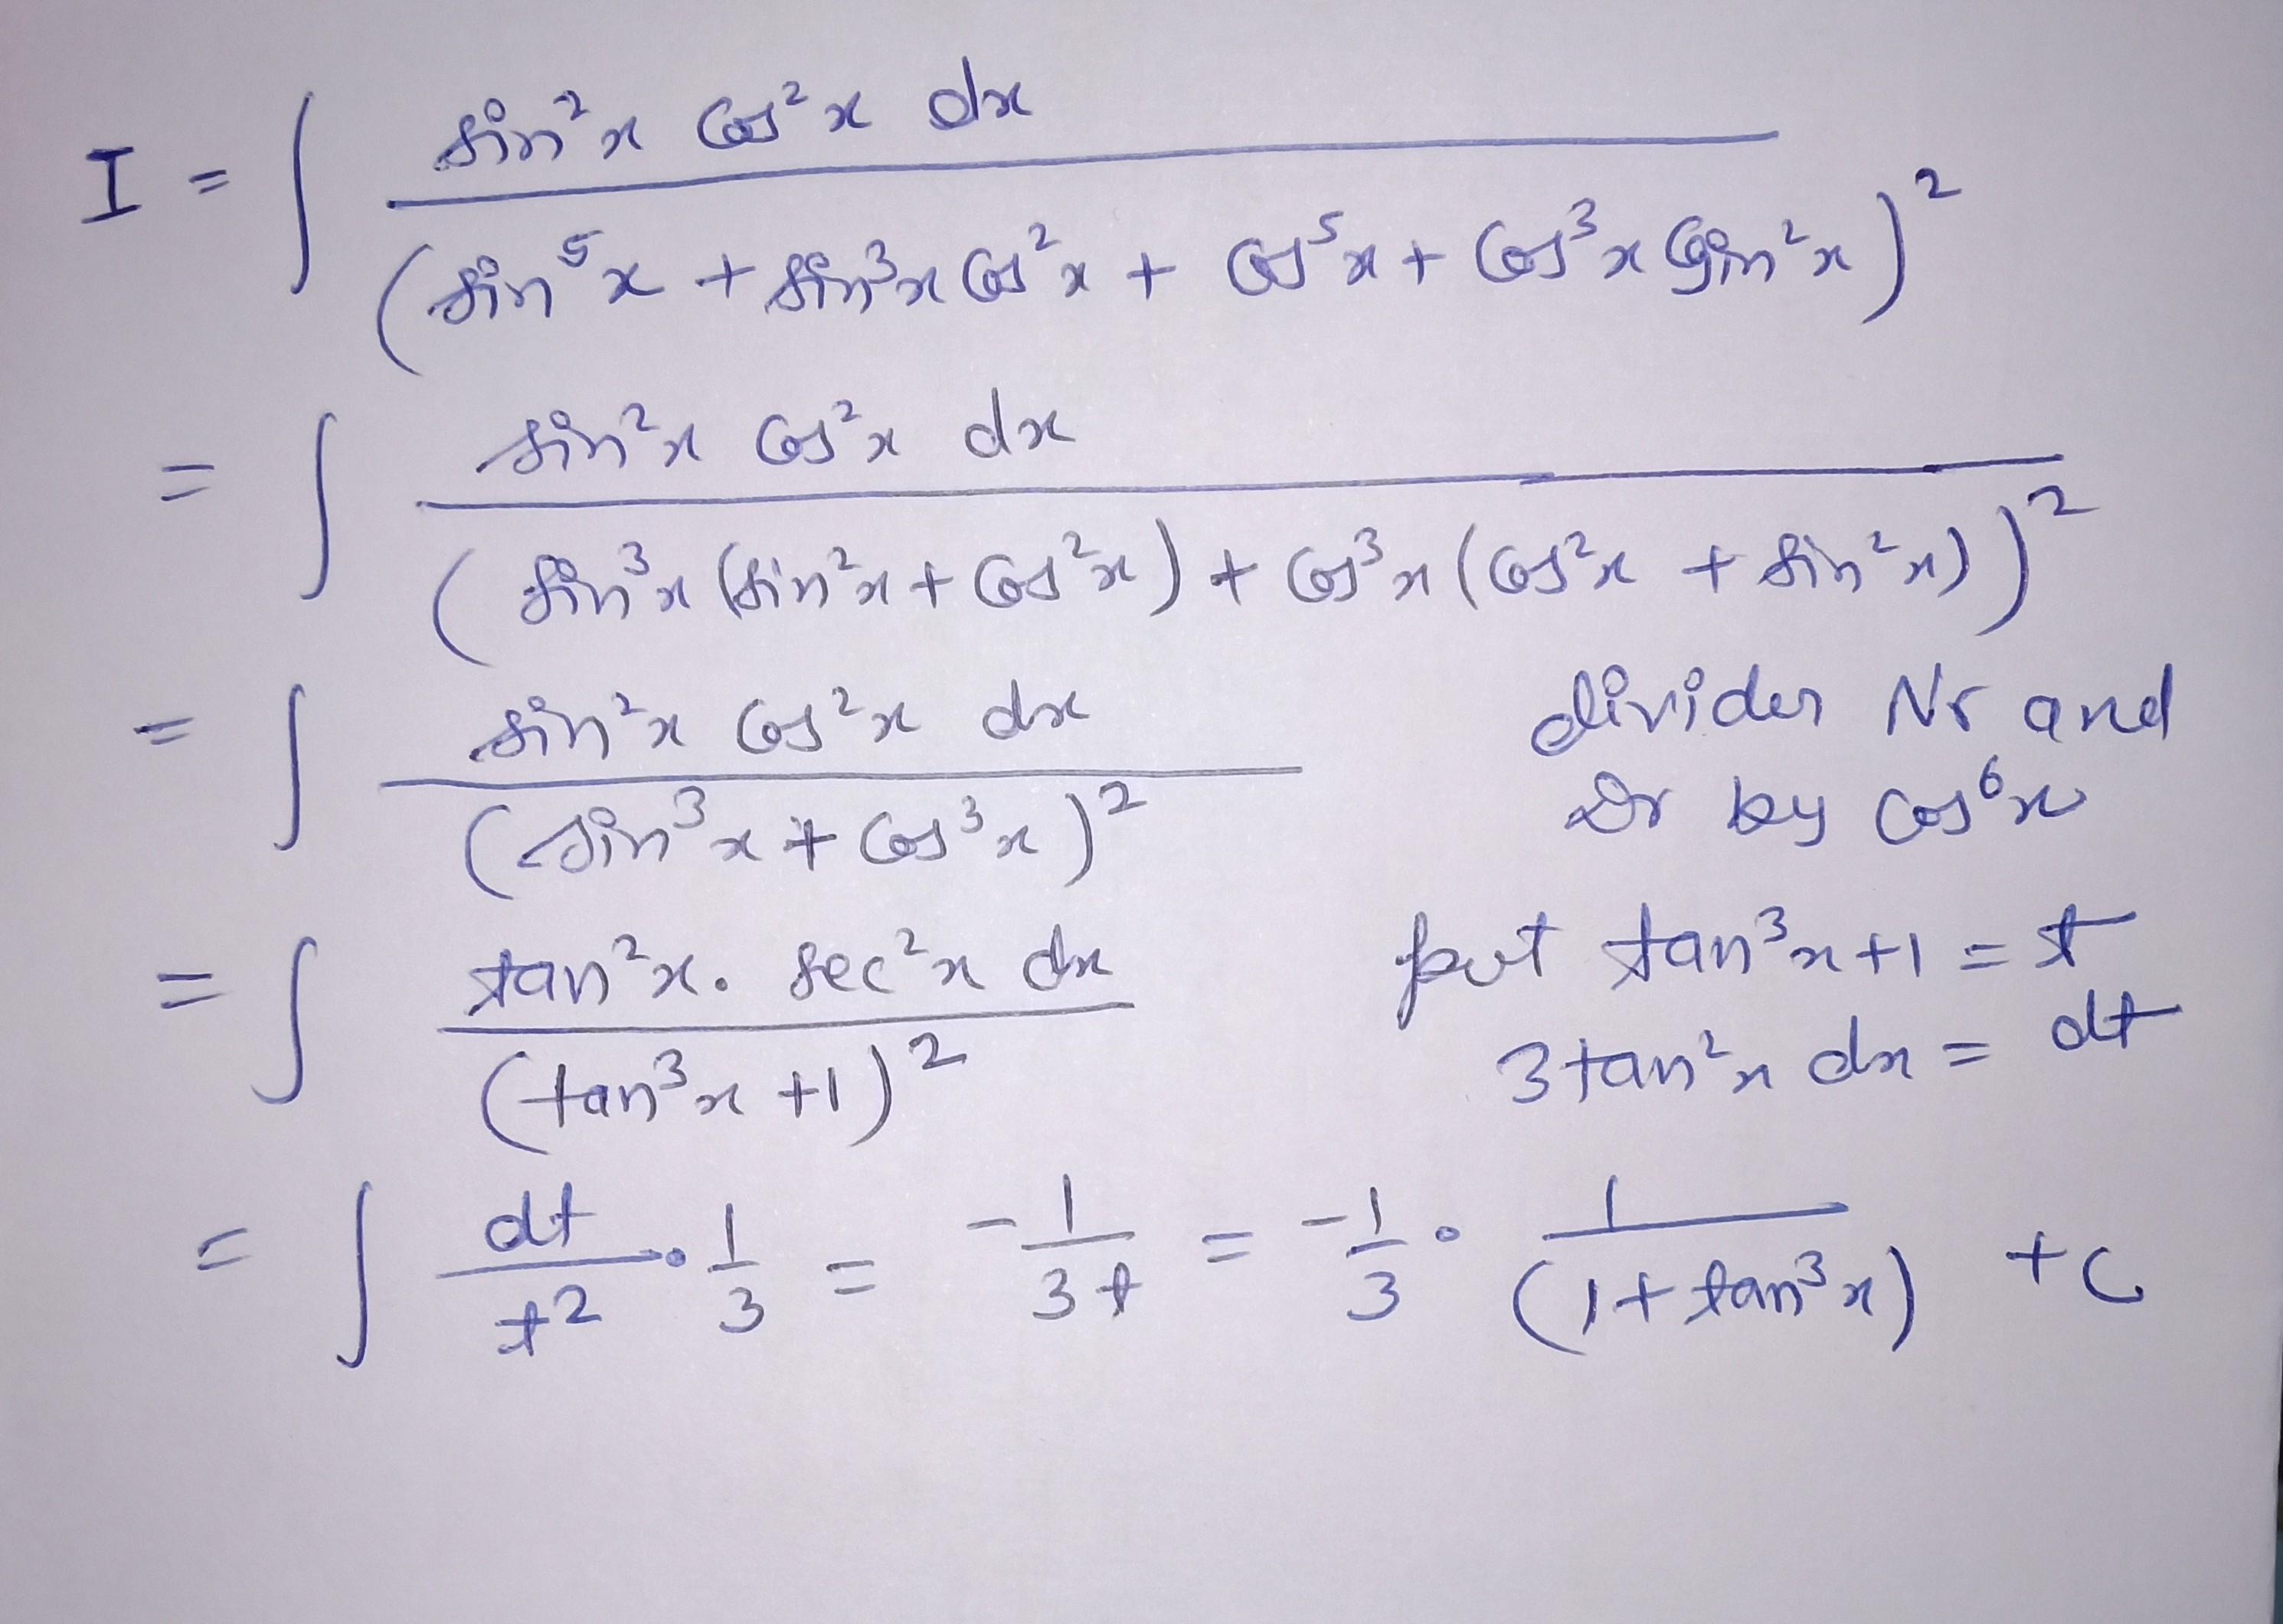 I = ∫ sin²x cos²x dx / (sin⁵x + sin³x cos²x + cos⁵x + cos³x sin²x)²
= ∫ sin²x cos²x dx / (sin³x (sin²x + cos²x) + cos³x (cos²x + sin²x))²
= ∫ sin²x cos²x dx / (sin³x + cos³x)² divider Nr and
Dr by cos⁶x
= ∫ tan²x. sec²x dx / (tan³x + 1)² put tan³x + 1 = t
3tan²x dx = dt
= ∫ dt/t² · 1/3 = -1/3t = -1/3 · 1/(1 + tan³x) + c